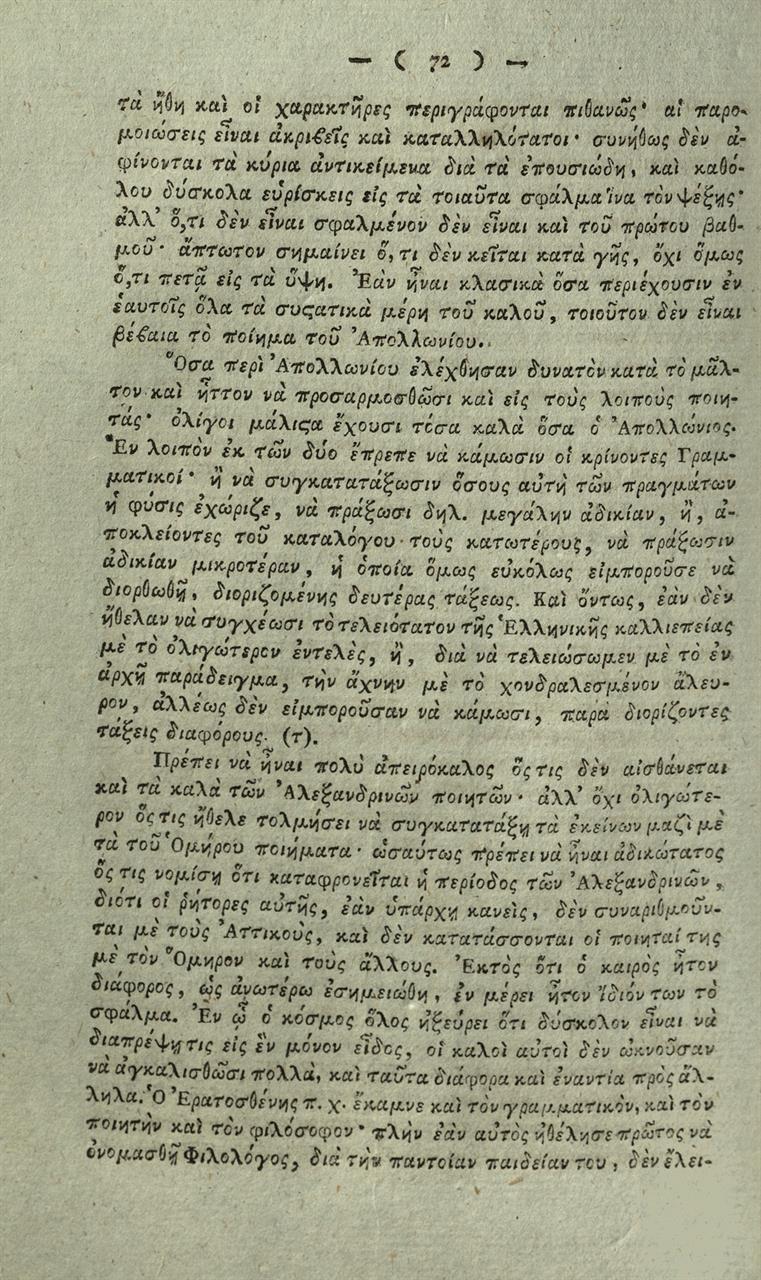 — ( 72 ) —
τὰ ἤθη καὶ οἱ χαρακτῆρες περιγράφονται πιθανῶς· αἱ παρο-
μοιώσεις εἶναι ἀκριβεῖς καὶ καταλληλότατοι· συνήθως δὲν ἀ-
φίνονται τὰ κύρια ἀντικείμενα διὰ τὰ ἐπουσιώδη, καὶ καθό-
λου δύσκολα εὑρίσκεις εἰς τὰ τοιαῦτα σφάλμα ἵνα τὸν ψέξῃς·
ἀλλ' ὅ,τι δὲν εἶναι σφαλμένον δὲν εἶναι καὶ τοῦ πρώτου βαθ-
μοῦ· ἄπτωτον σημαίνει ὅ,τι δὲν κεῖται κατὰ γῆς, ὄχι ὅμως
ὅ,τι πετᾷ εἰς τὰ ὕψη. Ἐὰν ἦναι κλασικὰ ὅσα περιέχουσιν ἐν
ἑαυτοῖς ὅλα τὰ συϛατικὰ μέρη τοῦ καλοῦ, τοιοῦτον δὲν εἶναι
βέβαια τὸ ποίημα τοῦ Ἀπολλωνίου.
Ὅσα περὶ Ἀπολλωνίου ἐλέχθησαν δυνατὸν κατὰ τὸ μᾶλ-
τον καὶ ἧττον νὰ προσαρμοσθῶσι καὶ εἰς τοὺς λοιποὺς ποιη-
τάς· ὀλίγοι μάλιϛα ἔχουσι τόσα καλὰ ὅσα ὁ Ἀπολλώνιος.
Ἓν λοιπὸν ἐκ τῶν δύο ἔπρεπε νὰ κάμωσιν οἱ κρίνοντες Γραμ-
ματικοί· ἢ νὰ συγκατατάξωσιν ὅσους αὐτὴ τῶν πραγμάτων
ἡ φύσις ἐχώριζε, νὰ πράξωσι δηλ. μεγάλην ἀδικίαν, ἢ, ἀ-
ποκλείοντες τοῦ καταλόγου τοὺς κατωτέρους, νὰ πράξωσιν
ἀδικίαν μικροτέραν, ἡ ὁποία ὅμως εὐκόλως εἰμποροῦσε νὰ
διορθωθῇ, διοριζομένης δευτέρας τάξεως. Καὶ ὄντως, ἐὰν δὲν
ἤθελαν νὰ συγχέωσι τὸ τελειότατον τῆς Ἑλληνικῆς καλλιεπείας
μὲ τὸ ὀλιγώτερον ἐντελὲς, ἢ, διὰ νὰ τελειώσωμεν μὲ τὸ ἐν
ἀρχῇ παράδειγμα, τὴν ἄχνην μὲ τὸ χονδραλεσμένον ἄλευ-
ρον, ἀλλέως δὲν εἰμποροῦσαν νὰ κάμωσι, παρὰ διορίζοντες
τάξεις διαφόρους. (τ).
Πρέπει νὰ ἦναι πολὺ ἀπειρόκαλος ὅς τις δὲν αἰσθάνεται
καὶ τὰ καλὰ τῶν Ἀλεξανδρινῶν ποιητῶν· ἀλλ' ὄχι ὀλιγώτε-
ρον ὅς τις ἤθελε τολμήσει νὰ συγκατατάξῃ τὰ ἐκείνων μαζὶ μὲ
τὰ τοῦ Ὁμήρου ποιήματα· ὡσαύτως πρέπει νὰ ἦναι ἀδικώτατος
ὅς τις νομίσῃ ὅτι καταφρονεῖται ἡ περίοδος τῶν Ἀλεξανδρινῶν,
διότι οἱ ῥήτορες αὐτῆς, ἐὰν ὑπάρχῃ κανεὶς, δὲν συναριθμοῦν-
ται μὲ τοὺς Ἀττικοὺς, καὶ δὲν κατατάσσονται οἱ ποιηταί της
μὲ τὸν Ὅμηρον καὶ τοὺς ἄλλους. Ἐκτὸς ὅτι ὁ καιρὸς ἦτον
διάφορος, ὡς ἀνωτέρω ἐσημειώθη, ἐν μέρει ἦτον ἴδιόν των τὸ
σφάλμα. Ἐν ᾧ ὁ κόσμος ὅλος ἠξεύρει ὅτι δύσκολον εἶναι νὰ
διαπρέψῃ τις εἰς ἓν μόνον εἶδος, οἱ καλοὶ αὐτοὶ δὲν ὠκνοῦσαν
νὰ ἀγκαλισθῶσι πολλὰ, καὶ ταῦτα διάφορα καὶ ἐναντία πρὸς ἄλ-
ληλα. Ὁ Ἐρατοσθένης π. χ. ἔκαμνε καὶ τὸν γραμματικὸν, καὶ τὸν
ποιητὴν καὶ τὸν φιλόσοφον· πλὴν ἐὰν αὐτὸς ἠθέλησε πρῶτος νὰ
ὀνομασθῇ Φιλολόγος, διὰ τὴν παντοίαν παιδείαν του, δὲν ἔλει-